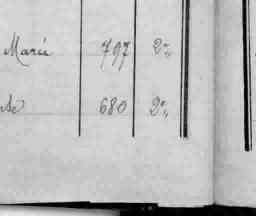 Marie 797 2%
680 2%